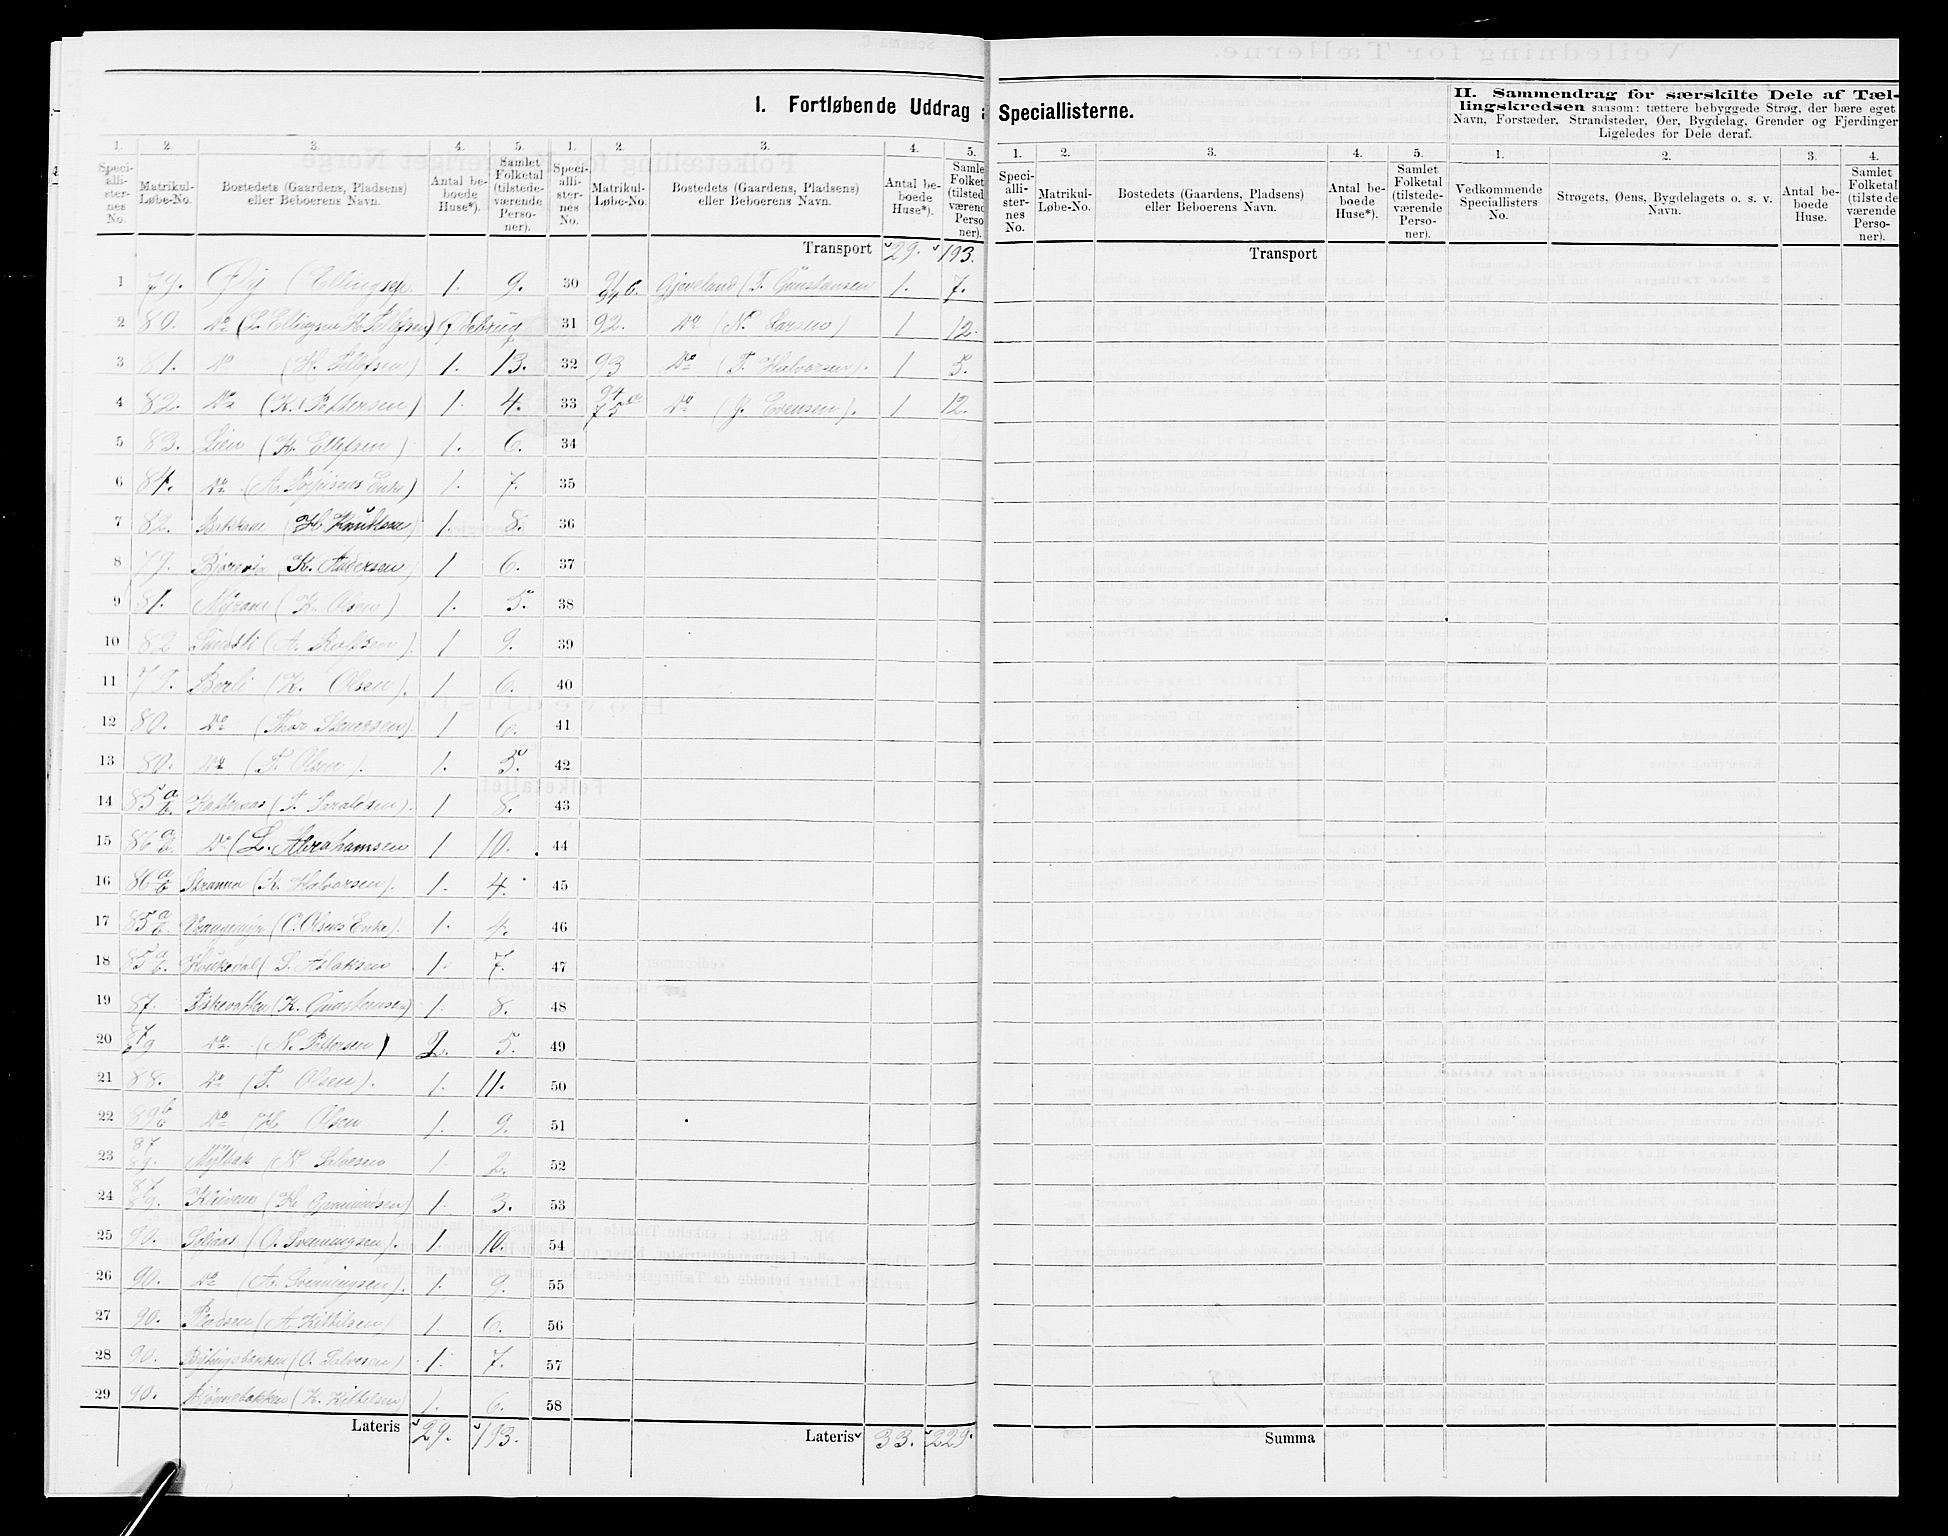 I. Fortløbende Uddrag a
Speciallisterne.
II. Sammendrag for særskilte Dele af Tæl-
lingskredsen saasom: tættere bebyggede Strøg, der bære eget
Navn, Forstæder, Strandsteder, Øer, Bygdelag, Grender og Fjerdinger
Ligeledes for Dele deraf.
1. 2. 3. 4. 5. 1. 2. 3. 4. 5.
Speci-alli-ster-nes No. Matrikul-Løbe-No. Bostedets (Gaardens, Pladsens) eller Beboerens Navn. Antal be-boede Huse*). Samlet Folketal (tilstede-værende Perso-ner). Speci-alli-ster-nes No. Matrikul-Løbe-No. Bostedets (Gaardens, Pladsens) eller Beboerens Navn. Antal be-boede Huse*). Samlet Folketal (tilstede-værende Perso-ner).
1. 2. 3. 4. 5. 1. 2. 3. 4.
Speci-alli-ster-nes No. Matrikul-Løbe-No. Bostedets (Gaardens, Pladsens) eller Beboerens Navn. Antal be-boede Huse*). Samlet Folketal (tilstede-værende Perso-ner). Vedkommende Speciallisters No. Strøgets, Øens, Bygdelagets o. s. v. Navn. Antal be-boede Huse. Samlet Folketal (tilstede-værende Perso-ner).
Transport 29. 193.
Transport
1 79. Øy (Ellingsen 1. 9. 30 Gjøveland (T. Gunstensen 1. 7.
2 80. Do (L. Ellingsen H. Tellefsen) (Ødebrug 31 92. Do (N. Larsen) 1 12.
3 81. Do (H. Tellefsen) 1. 13. 32 93 Do (T. Halvorsen). 1 5.
4 82. Do (K. Pettersen) 1. 4. 33 94 75a Do (J. Evensen). 1 12.
5 83. Lien (K. Ellefsen) 1. 6. 34
6 84. Do (A. Enke) 1. 7. 35
7 82. Bakkane (H. Knudtsen) 1. 8. 36
8 79. (K. Andersen) 1 6. 37
9 81. Myrane (K. Olsen) 1. 5. 38
10 82 Sundsli (A. Rolfsen). 1 9. 39
11 79. Berli (K. Olsen). 1 6. 40
12 80. Do (Thor Stenersen) 1 6. 41
13 80. Do (T. Olsen). 1. 5. 42
14 85 a b. Katteraas (T. Taraldsen). 1 8. 43
15 86 a b Do (L. Abrahamsen 1 10. 44
16 86 a b Stranna (K. Halvorsen). 1. 4. 45
17 85 a b. (O. Olsens Enke). 1. 4. 46
18 85 a b. Haukedal (S. Aslaksen 1. 7. 47
19 87. Fiskevatten (K. Gunstensen) 1. 8. 48
20 87 89 Do (N. Pettersen) 2. 5. 49
21 88. Do (T. Olsen). 1. 11. 50
22 89 b Do (H Olsen 1. 9. 51
23 87 89. (N. Salvesen 1. 2. 52
24 87 89. Kleivene (H. Gjermundsen) 1. 3. 53
25 90. Soliaas (O. Svenningsen). 1. 10. 54
26 90. Do (A. Svenningsen). 1. 9. 55
27 90. Pladsen (A. Kittilsen) 1. 6. 56
28 90. (O. Salvesen) 1. 7. 57
29 90. Bjønnebakken (K. Kittelsen) 1. 6. 58
Lateris 29. 193.
Lateris 33. 229.
Summa